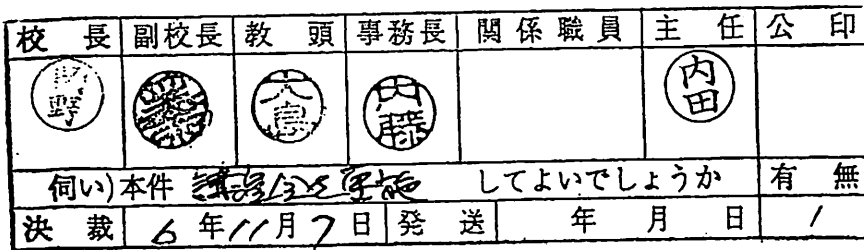 校長 副校長 教頭 事務長 関係職員 主任 公印
内藤 内田
伺い)本件 を実施 してよいでしょうか 有 無
決裁 6年11月7日 発送 年 月 日 /